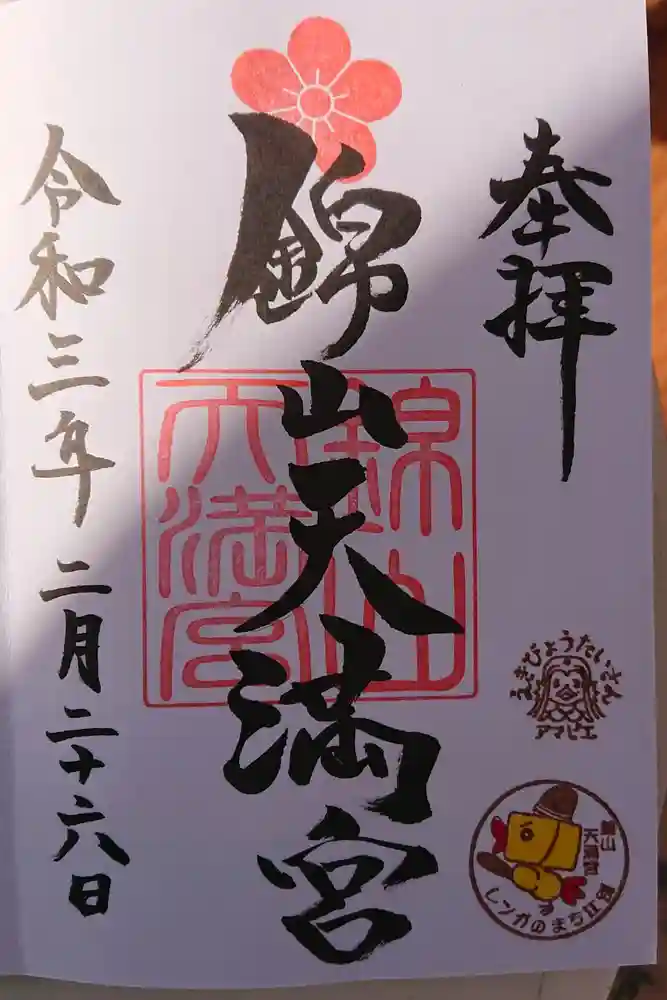 奉拝
錦山天満宮
令和三年二月二十六日
錦山
天満宮
えきびょうたいさん
アマビエ
錦山
天満宮
レンガのまち江別